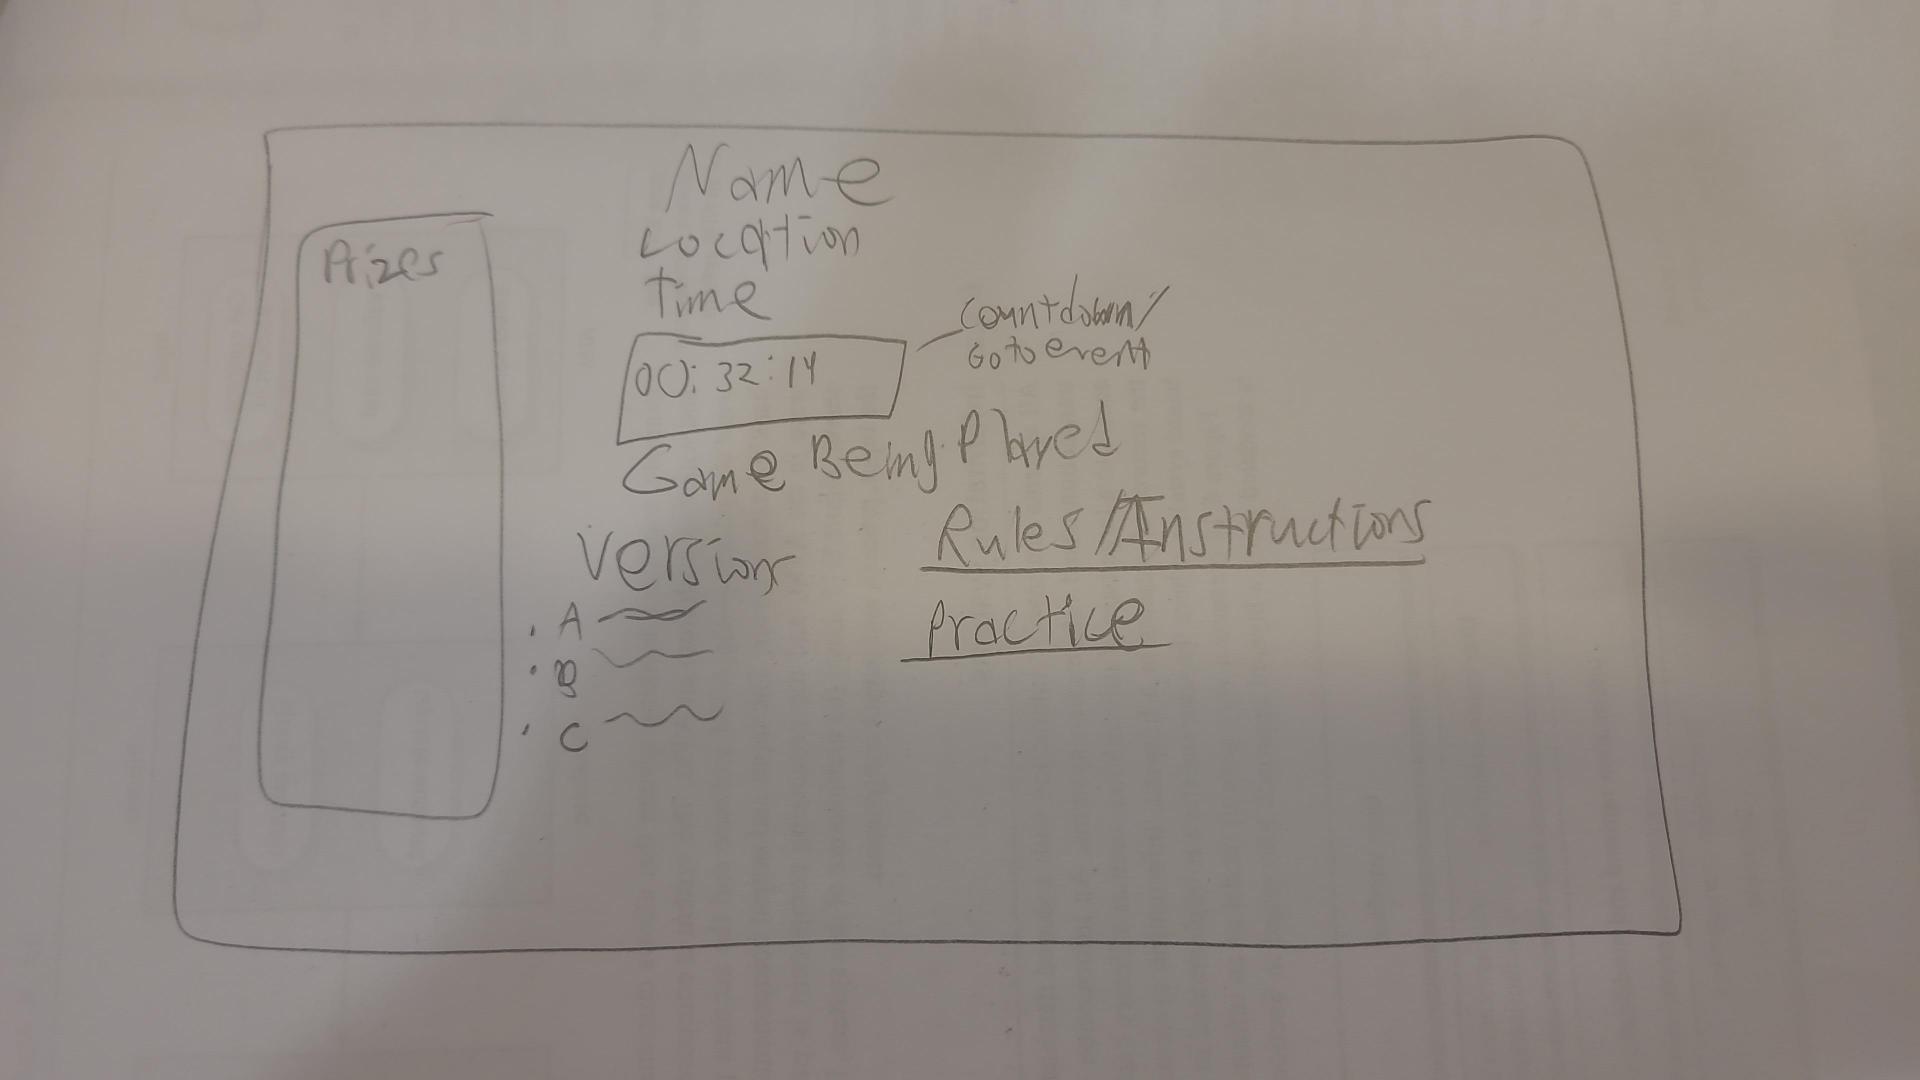 Name
Location
Time
Prizes
00:32:14
Countdown/
Go to event
Game Being Played
Versions
Rules/Instructions
Practice
. A
. B
. C